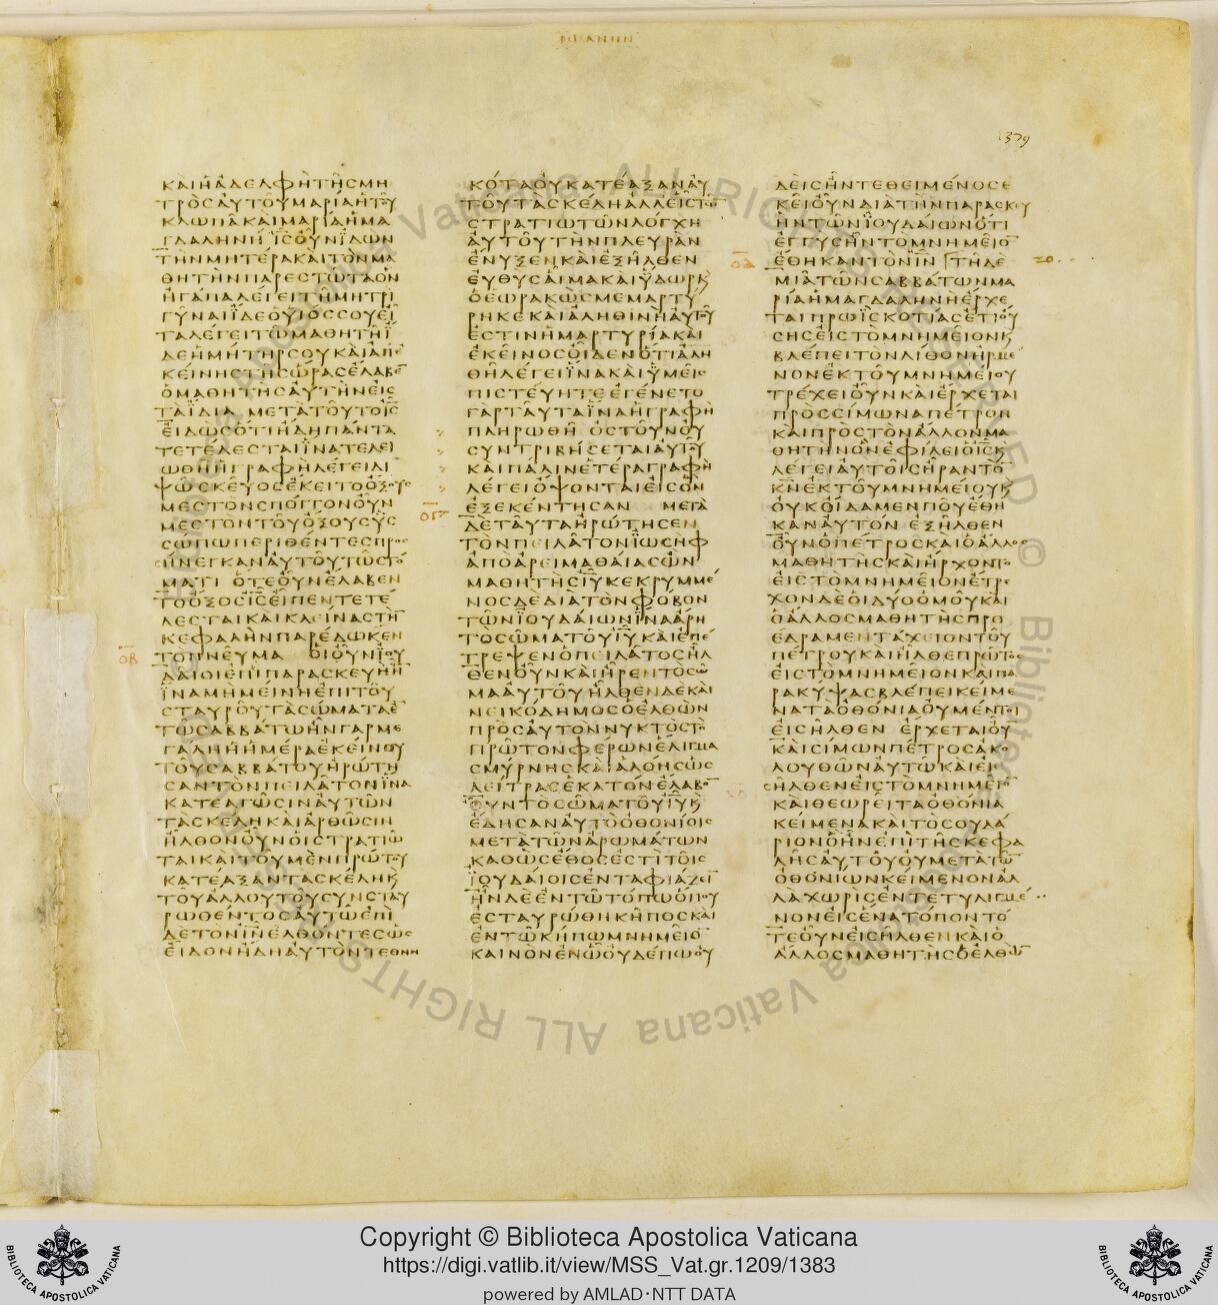 ΙΩΑΝΗΝ
1379
ΚΑΙΗΑΔΕΛΦΗΤΗΣΜΗ
ΤΡΟΣΑΥΤΟΥΜΑΡΙΑΗΤΟΥ
ΚΛΩΠΑΚΑΙΜΑΡΙΑΗΜΑ
ΓΔΑΛΗΝΗ ΙΣΟΥΝΙΔΩΝ
ΤΗΝΜΗΤΕΡΑΚΑΙΤΟΝΜΑ
ΘΗΤΗΝΠΑΡΕΣΤΩΤΑΟΝ
ΗΓΑΠΑΛΕΓΕΙΤΗΜΗΤΡΙ
ΓΥΝΑΙΙΔΕΟΥΙΟΣΣΟΥΕΙ
ΤΑΛΕΓΕΙΤΩΜΑΘΗΤΗΙ
ΔΕΗΜΗΤΗΡΣΟΥΚΑΙΑΠΕ
ΚΕΙΝΗΣΤΗΣΩΡΑΣΕΛΑΒΕ
ΟΜΑΘΗΤΗΣΑΥΤΗΝΕΙΣ
ΤΑΙΔΙΑ ΜΕΤΑΤΟΥΤΟΙΣ
ΕΙΔΩΣΟΤΙΗΔΗΠΑΝΤΑ
ΤΕΤΕΛΕΣΤΑΙΙΝΑΤΕΛΕΙ
ΩΘΗΗΓΡΑΦΗΛΕΓΕΙΔΙ
ΨΩΣΚΕΥΟΣΕΚΕΙΤΟΟΞΟΥΣ
ΜΕΣΤΟΝΣΠΟΓΓΟΝΟΥΝ
ΜΕΣΤΟΝΤΟΥΟΞΟΥΣΥΣ
ΣΩΠΩΠΕΡΙΘΕΝΤΕΣΠΡΟΣ
ΗΝΕΓΚΑΝΑΥΤΟΥΤΩΣΤΟ
ΜΑΤΙ ΟΤΕΟΥΝΕΛΑΒΕΝ
ΤΟΟΞΟΣΙΣΕΙΠΕΝΤΕΤΕ
ΛΕΣΤΑΙΚΑΙΚΛΕΙΝΑΣΤΗ
ΚΕΦΑΛΗΝΠΑΡΕΔΩΚΕΝ
ΟΒ
ΤΟΠΝΕΥΜΑ ΟΙΟΥΝΙΟΥ
ΔΑΙΟΙΕΠΙΠΑΡΑΣΚΕΥΗΗ
ΙΝΑΜΗΜΕΙΝΗΕΠΙΤΟΥ
ΣΤΑΥΡΟΥΤΑΣΩΜΑΤΑΕ
ΤΩΣΑΒΒΑΤΩΗΝΓΑΡΜΕ
ΓΑΛΗΗΗΜΕΡΑΕΚΕΙΝΟΥ
ΤΟΥΣΑΒΒΑΤΟΥΗΡΩΤΗ
ΣΑΝΤΟΝΠΕΙΛΑΤΟΝΙΝΑ
ΚΑΤΕΑΓΩΣΙΝΑΥΤΩΝ
ΤΑΣΚΕΛΗΚΑΙΑΡΘΩΣΙΝ
ΗΛΘΟΝΟΥΝΟΙΣΤΡΑΤΙΩ
ΤΑΙΚΑΙΤΟΥΜΕΝΠΡΩΤΟΥ
ΚΑΤΕΑΞΑΝΤΑΣΚΕΛΗΚ
ΤΟΥΑΛΛΟΥΤΟΥΣΥΝΣΤΑΥ
ΡΩΘΕΝΤΟΣΑΥΤΩΕΠΙ
ΔΕΤΟΝΙΝΕΛΘΟΝΤΕΣΩΣ
ΕΙΔΟΝΗΔΗΑΥΤΟΝΤΕΘΝΗ
ΚΟΤΑΟΥΚΑΤΕΑΞΑΝΑΥ
ΤΟΥΤΑΣΚΕΛΗΑΛΛΕΙΣΤΩ
ΣΤΡΑΤΙΩΤΩΝΛΟΓΧΗ
ΑΥΤΟΥΤΗΝΠΛΕΥΡΑΝ
ΕΝΥΞΕΝΚΑΙΕΞΗΛΘΕΝ
ΕΥΘΥΣΑΙΜΑΚΑΙΥΔΩΡΚ
ΟΕΩΡΑΚΩΣΜΕΜΑΡΤΥ
ΡΗΚΕΚΑΙΑΛΗΘΙΝΗΑΥΤΟΥ
ΕΣΤΙΝΗΜΑΡΤΥΡΙΑΚΑΙ
ΕΚΕΙΝΟΣΟΙΔΕΝΟΤΙΑΛΗ
ΘΗΛΕΓΕΙΙΝΑΚΑΙΥΜΕΙΣ
ΠΙΣΤΕΥΗΤΕΕΓΕΝΕΤΟ
ΓΑΡΤΑΥΤΑΙΝΑΗΓΡΑΦΗ
ΠΛΗΡΩΘΗ ΟΣΤΟΥΝΟΥ
ΣΥΝΤΡΙΒΗΣΕΤΑΙΑΥΤΟΥ
ΚΑΙΠΑΛΙΝΕΤΕΡΑΓΡΑΦΗ
ΛΕΓΕΙΟΨΟΝΤΑΙΕΙΣΟΝ
ΕΞΕΚΕΝΤΗΣΑΝ ΜΕΤΑ
ΟΓ
ΔΕΤΑΥΤΑΗΡΩΤΗΣΕΝ
ΤΟΝΠΕΙΛΑΤΟΝΙΩΣΗΦ
ΑΠΟΑΡΕΙΜΑΘΑΙΑΣΩΝ
ΜΑΘΗΤΗΣΙΥΚΕΚΡΥΜΜΕ
ΝΟΣΔΕΔΙΑΤΟΝΦΟΒΟΝ
ΤΩΝΙΟΥΔΑΙΩΝΙΝΑΑΡΗ
ΤΟΣΩΜΑΤΟΥΙΥΚΑΙΕΠΕ
ΤΡΕΨΕΝΟΠΕΙΛΑΤΟΣΗΛ
ΘΕΝΟΥΝΚΑΙΗΡΕΝΤΟΣΩ
ΜΑΑΥΤΟΥΗΛΘΕΝΔΕΚΑΙ
ΝΕΙΚΟΔΗΜΟΣΟΕΛΘΩΝ
ΠΡΟΣΑΥΤΟΝΝΥΚΤΟΣΤΟ
ΠΡΩΤΟΝΦΕΡΩΝΕΛΙΓΜΑ
ΣΜΥΡΝΗΣΚΑΙΑΛΟΗΣΩΣ
ΛΕΙΤΡΑΣΕΚΑΤΟΝΕΛΑΒΟ
ΟΥΝΤΟΣΩΜΑΤΟΥΙΥΚ
ΕΔΗΣΑΝΑΥΤΟΟΘΟΝΙΟΙΣ
ΜΕΤΑΤΩΝΑΡΩΜΑΤΩΝ
ΚΑΘΩΣΕΘΟΣΕΣΤΙΤΟΙΣ
ΙΟΥΔΑΙΟΙΣΕΝΤΑΦΙΑΖΕΙ
ΗΝΔΕΕΝΤΩΤΟΠΩΟΠΟΥ
ΕΣΤΑΥΡΩΘΗΚΗΠΟΣΚΑΙ
ΕΝΤΩΚΗΠΩΜΝΗΜΕΙΟ
ΚΑΙΝΟΝΕΝΩΟΥΔΕΠΩΟΥ
ΔΕΙΣΗΝΤΕΘΕΙΜΕΝΟΣΕ
ΚΕΙΟΥΝΔΙΑΤΗΝΠΑΡΑΣΚΕΥ
ΗΝΤΩΝΙΟΥΔΑΙΩΝΟΤΙ
ΕΓΓΥΣΗΝΤΟΜΝΗΜΕΙΟ
ΟΔ
ΕΘΗΚΑΝΤΟΝΙΝ ΤΗΔΕ
ΜΙΑΤΩΝΣΑΒΒΑΤΩΝΜΑ
ΡΙΑΗΜΑΓΔΑΛΗΝΗΕΡΧΕ
ΤΑΙΠΡΩΙΣΚΟΤΙΑΣΕΤΙΟΥ
ΣΗΣΕΙΣΤΟΜΝΗΜΕΙΟΝΚ
ΒΛΕΠΕΙΤΟΝΛΙΘΟΝΗΡΜΕ
ΝΟΝΕΚΤΟΥΜΝΗΜΕΙΟΥ
ΤΡΕΧΕΙΟΥΝΚΑΙΕΡΧΕΤΑΙ
ΠΡΟΣΣΙΜΩΝΑΠΕΤΡΟΝ
ΚΑΙΠΡΟΣΤΟΝΑΛΛΟΝΜΑ
ΘΗΤΗΝΟΝΕΦΙΛΕΙΟΙΣΚ
ΛΕΓΕΙΑΥΤΟΙΣΗΡΑΝΤΟ
ΚΝΕΚΤΟΥΜΝΗΜΕΙΟΥΚ
ΟΥΚΟΙΔΑΜΕΝΠΟΥΕΘΗ
ΚΑΝΑΥΤΟΝ ΕΞΗΛΘΕΝ
ΟΥΝΟΠΕΤΡΟΣΚΑΙΟΑΛΛΟΣ
ΜΑΘΗΤΗΣΚΑΙΗΡΧΟΝΤΟ
ΕΙΣΤΟΜΝΗΜΕΙΟΝΕΤΡΕ
ΧΟΝΔΕΟΙΔΥΟΟΜΟΥΚΑΙ
ΟΑΛΛΟΣΜΑΘΗΤΗΣΠΡΟ
ΕΔΡΑΜΕΝΤΑΧΕΙΟΝΤΟΥ
ΠΕΤΡΟΥΚΑΙΗΛΘΕΠΡΩΤΟΣ
ΕΙΣΤΟΜΝΗΜΕΙΟΝΚΑΙΠΑ
ΡΑΚΥΨΑΣΒΛΕΠΕΙΚΕΙΜΕ
ΝΑΤΑΟΘΟΝΙΑΟΥΜΕΝΤΟΙ
ΕΙΣΗΛΘΕΝ ΕΡΧΕΤΑΙΟΥ
ΚΑΙΣΙΜΩΝΠΕΤΡΟΣΑΚΟ
ΛΟΥΘΩΝΑΥΤΩΚΑΙΕΙΣ
ΗΛΘΕΝΕΙΣΤΟΜΝΗΜΕΙΟ
ΚΑΙΘΕΩΡΕΙΤΑΟΘΟΝΙΑ
ΚΕΙΜΕΝΑΚΑΙΤΟΣΟΥΔΑ
ΡΙΟΝΟΗΝΕΠΙΤΗΣΚΕΦΑ
ΛΗΣΑΥΤΟΥΟΥΜΕΤΑΤΩ
ΟΘΟΝΙΩΝΚΕΙΜΕΝΟΝΑΛ
ΛΑΧΩΡΙΣΕΝΤΕΤΥΛΙΓΜΕ
ΝΟΝΕΙΣΕΝΑΤΟΠΟΝΤΟ
ΤΕΟΥΝΕΙΣΗΛΘΕΝΚΑΙΟ
ΑΛΛΟΣΜΑΘΗΤΗΣΟΕΛΘΩ
Copyright © Biblioteca Apostolica Vaticana
https://digi.vatlib.it/view/MSS_Vat.gr.1209/1383
powered by AMLAD·NTT DATA
BIBLIOTECA APOSTOLICA VATICANA
BIBLIOTECA APOSTOLICA VATICANA